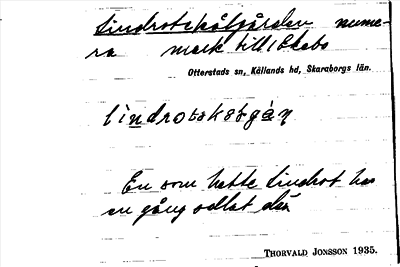 Lindrotskålgården nume-
ra mark till 1 Skebo
Otterstads sn, Kållands hd, Skaraborgs län.
lindrotskó̤̤lgán
En som hette Lindrot har
en gång odlat den
THORVALD JONSSON 1935.